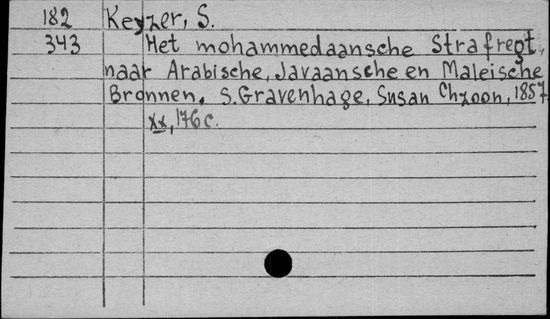 182 Keyzer, S.
343 Het mohammedaansche Strafregt,
naar Arabische, Javaansche en Maleische
Bronnen. S.Gravenhage, Susan Chzoon, 1857
xx, 176 c.